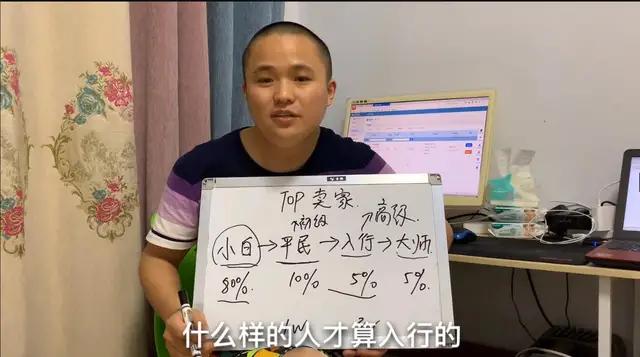 TOP 卖家
初级 高级
小白→平民→入行→大师
80% 10% 5% 5%
什么样的人才算入行的